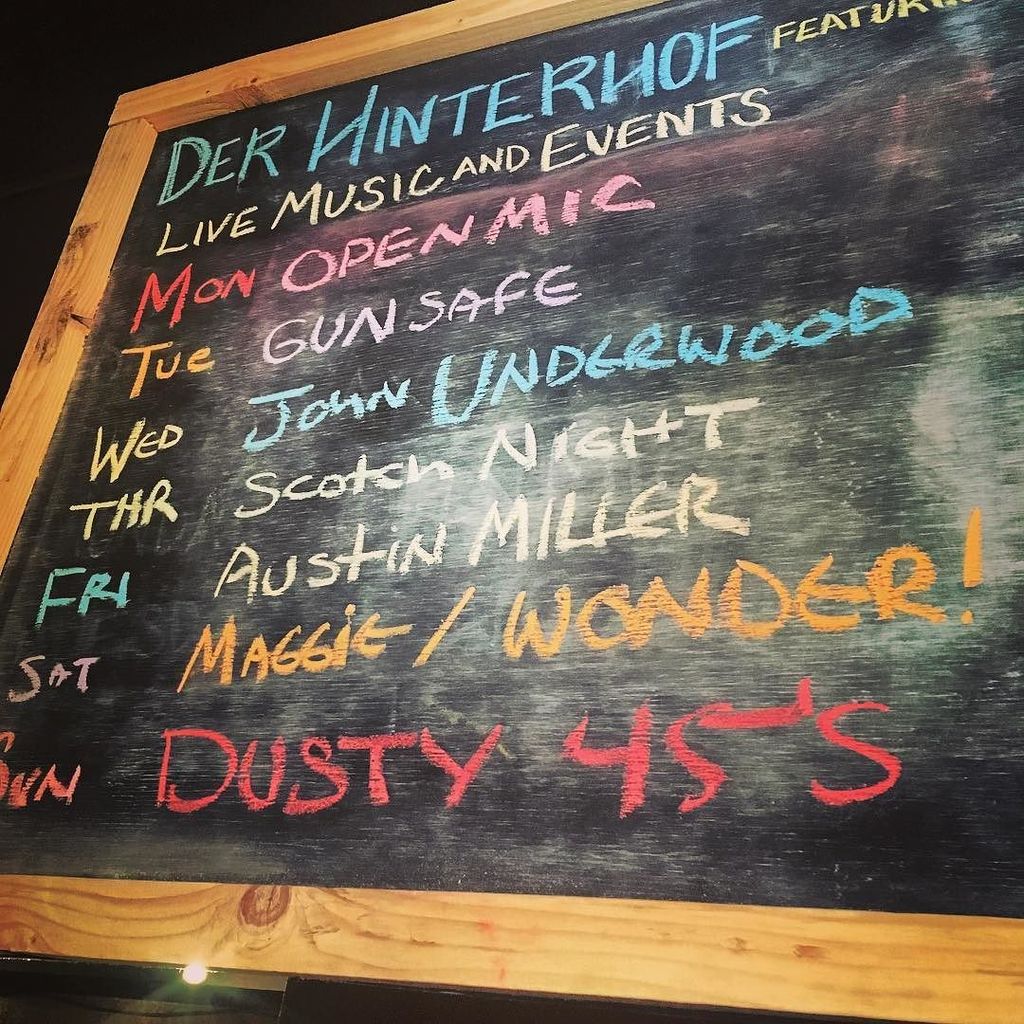 DER HINTERHOF
LIVE MUSIC AND EVENTS
MON OPEN MIC
TUE GUNSAFE
WED JOHN UNDERWOOD
THR SCOTCH NIGHT
FRI AUSTIN MILLER
SAT MAGGIE / WONDER!
SUN DUSTY 45'S